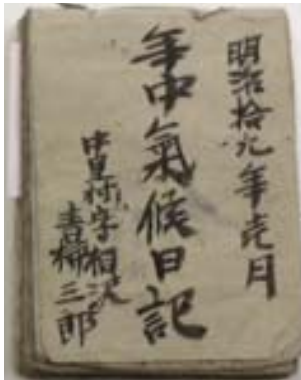 明治拾九年壱月
年中氣候日記
中里村字相沢
青柳三郎